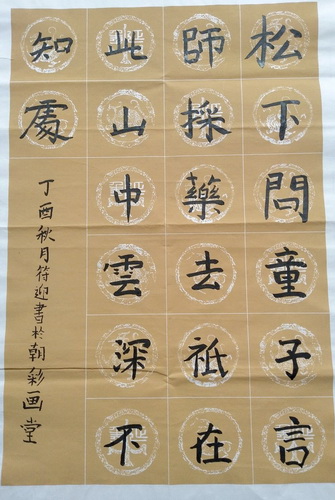 松下問童子言
師採藥去祇在
此山中雲深不
知處
丁酉秋月符迎書於朝彩画堂